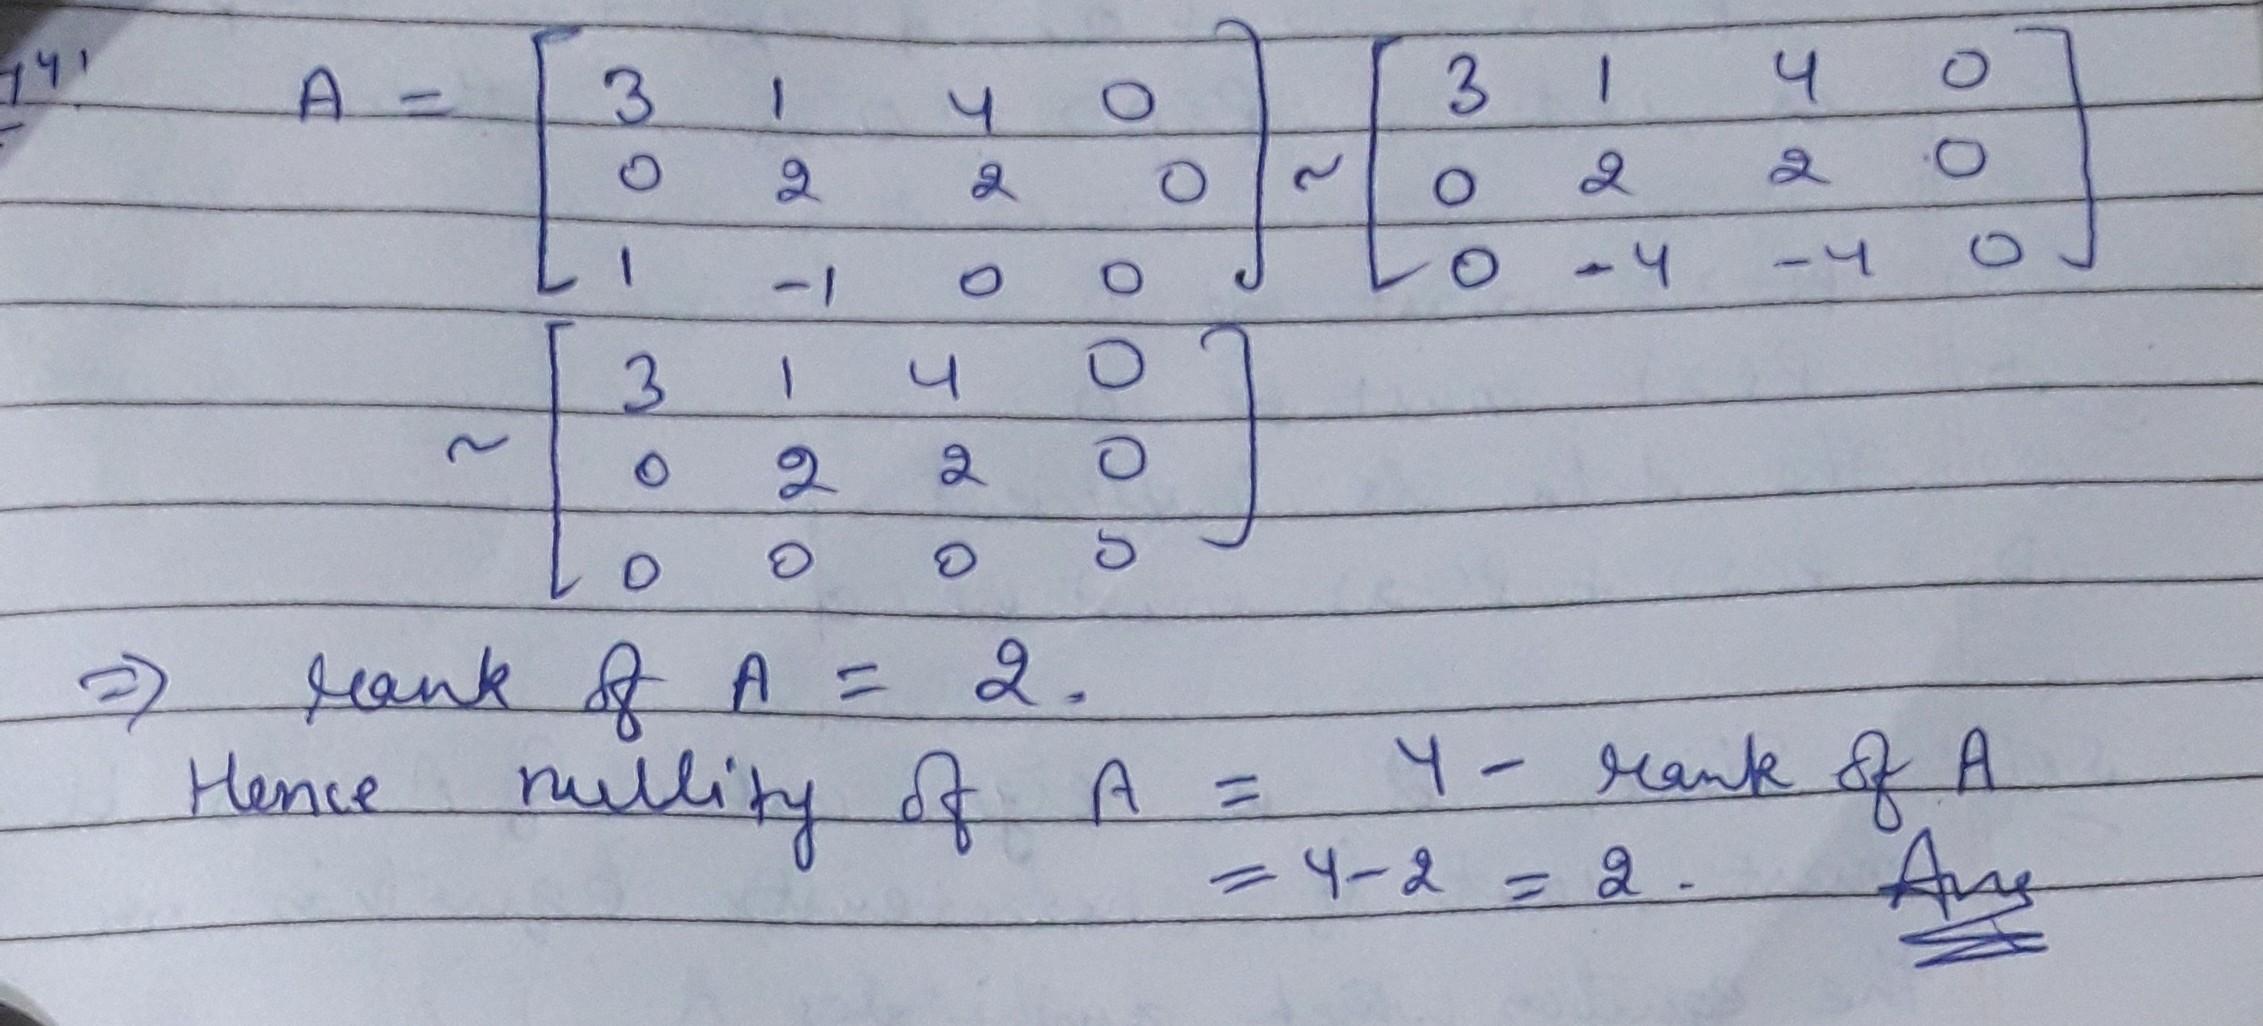 14. A = [ 3 1 4 0 ] ~ [ 3 1 4 0 ]
0 2 2 0 0 2 2 0
1 -1 0 0 0 -4 -4 0
~ [ 3 1 4 0 ]
0 2 2 0
0 0 0 0
=> rank of A = 2.
Hence nullity of A = 4 - rank of A
= 4-2 = 2. Ans